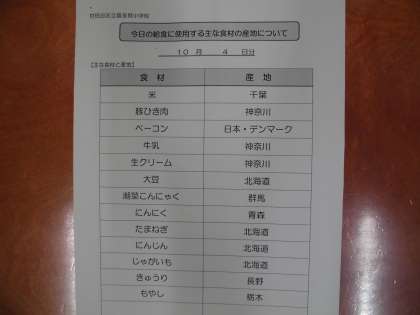 今日の給食に使用する主な食材の産地について
10 月 4 日分
【主な食材と産地】
食 材 産 地
米 千葉
豚ひき肉 神奈川
ベーコン 日本・デンマーク
牛乳 神奈川
生クリーム 神奈川
大豆 北海道
海藻こんにゃく 群馬
にんにく 青森
たまねぎ 北海道
にんじん 北海道
じゃがいも 北海道
きゅうり 長野
もやし 栃木